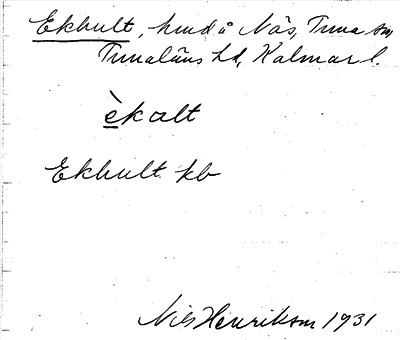 Ekhult, hmd å Näs, Tuna sn,
Tunaläns hd, Kalmar l.
èkalt
Ekhult kb
Nils Henrikson 1931